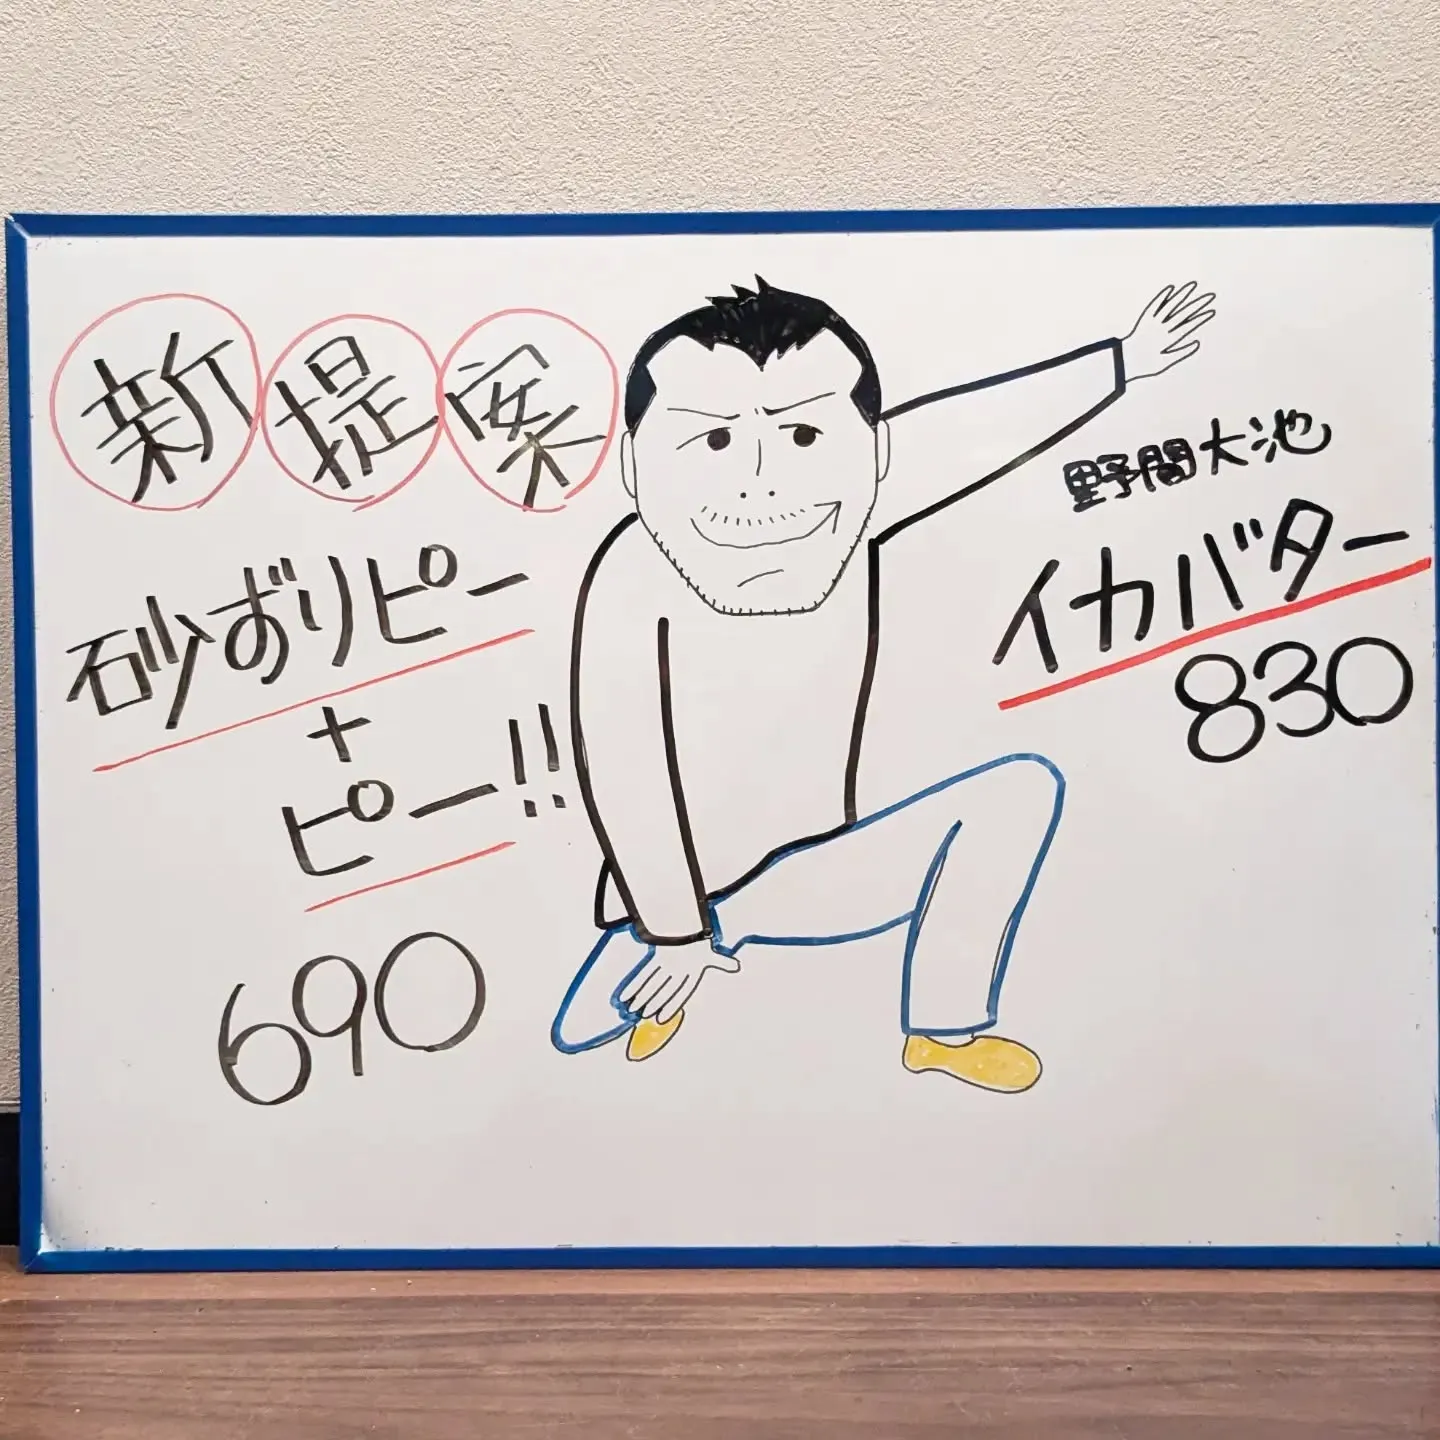 新提案
砂ずりピー
+
ピー!!
690
野間大池
イカバター
830